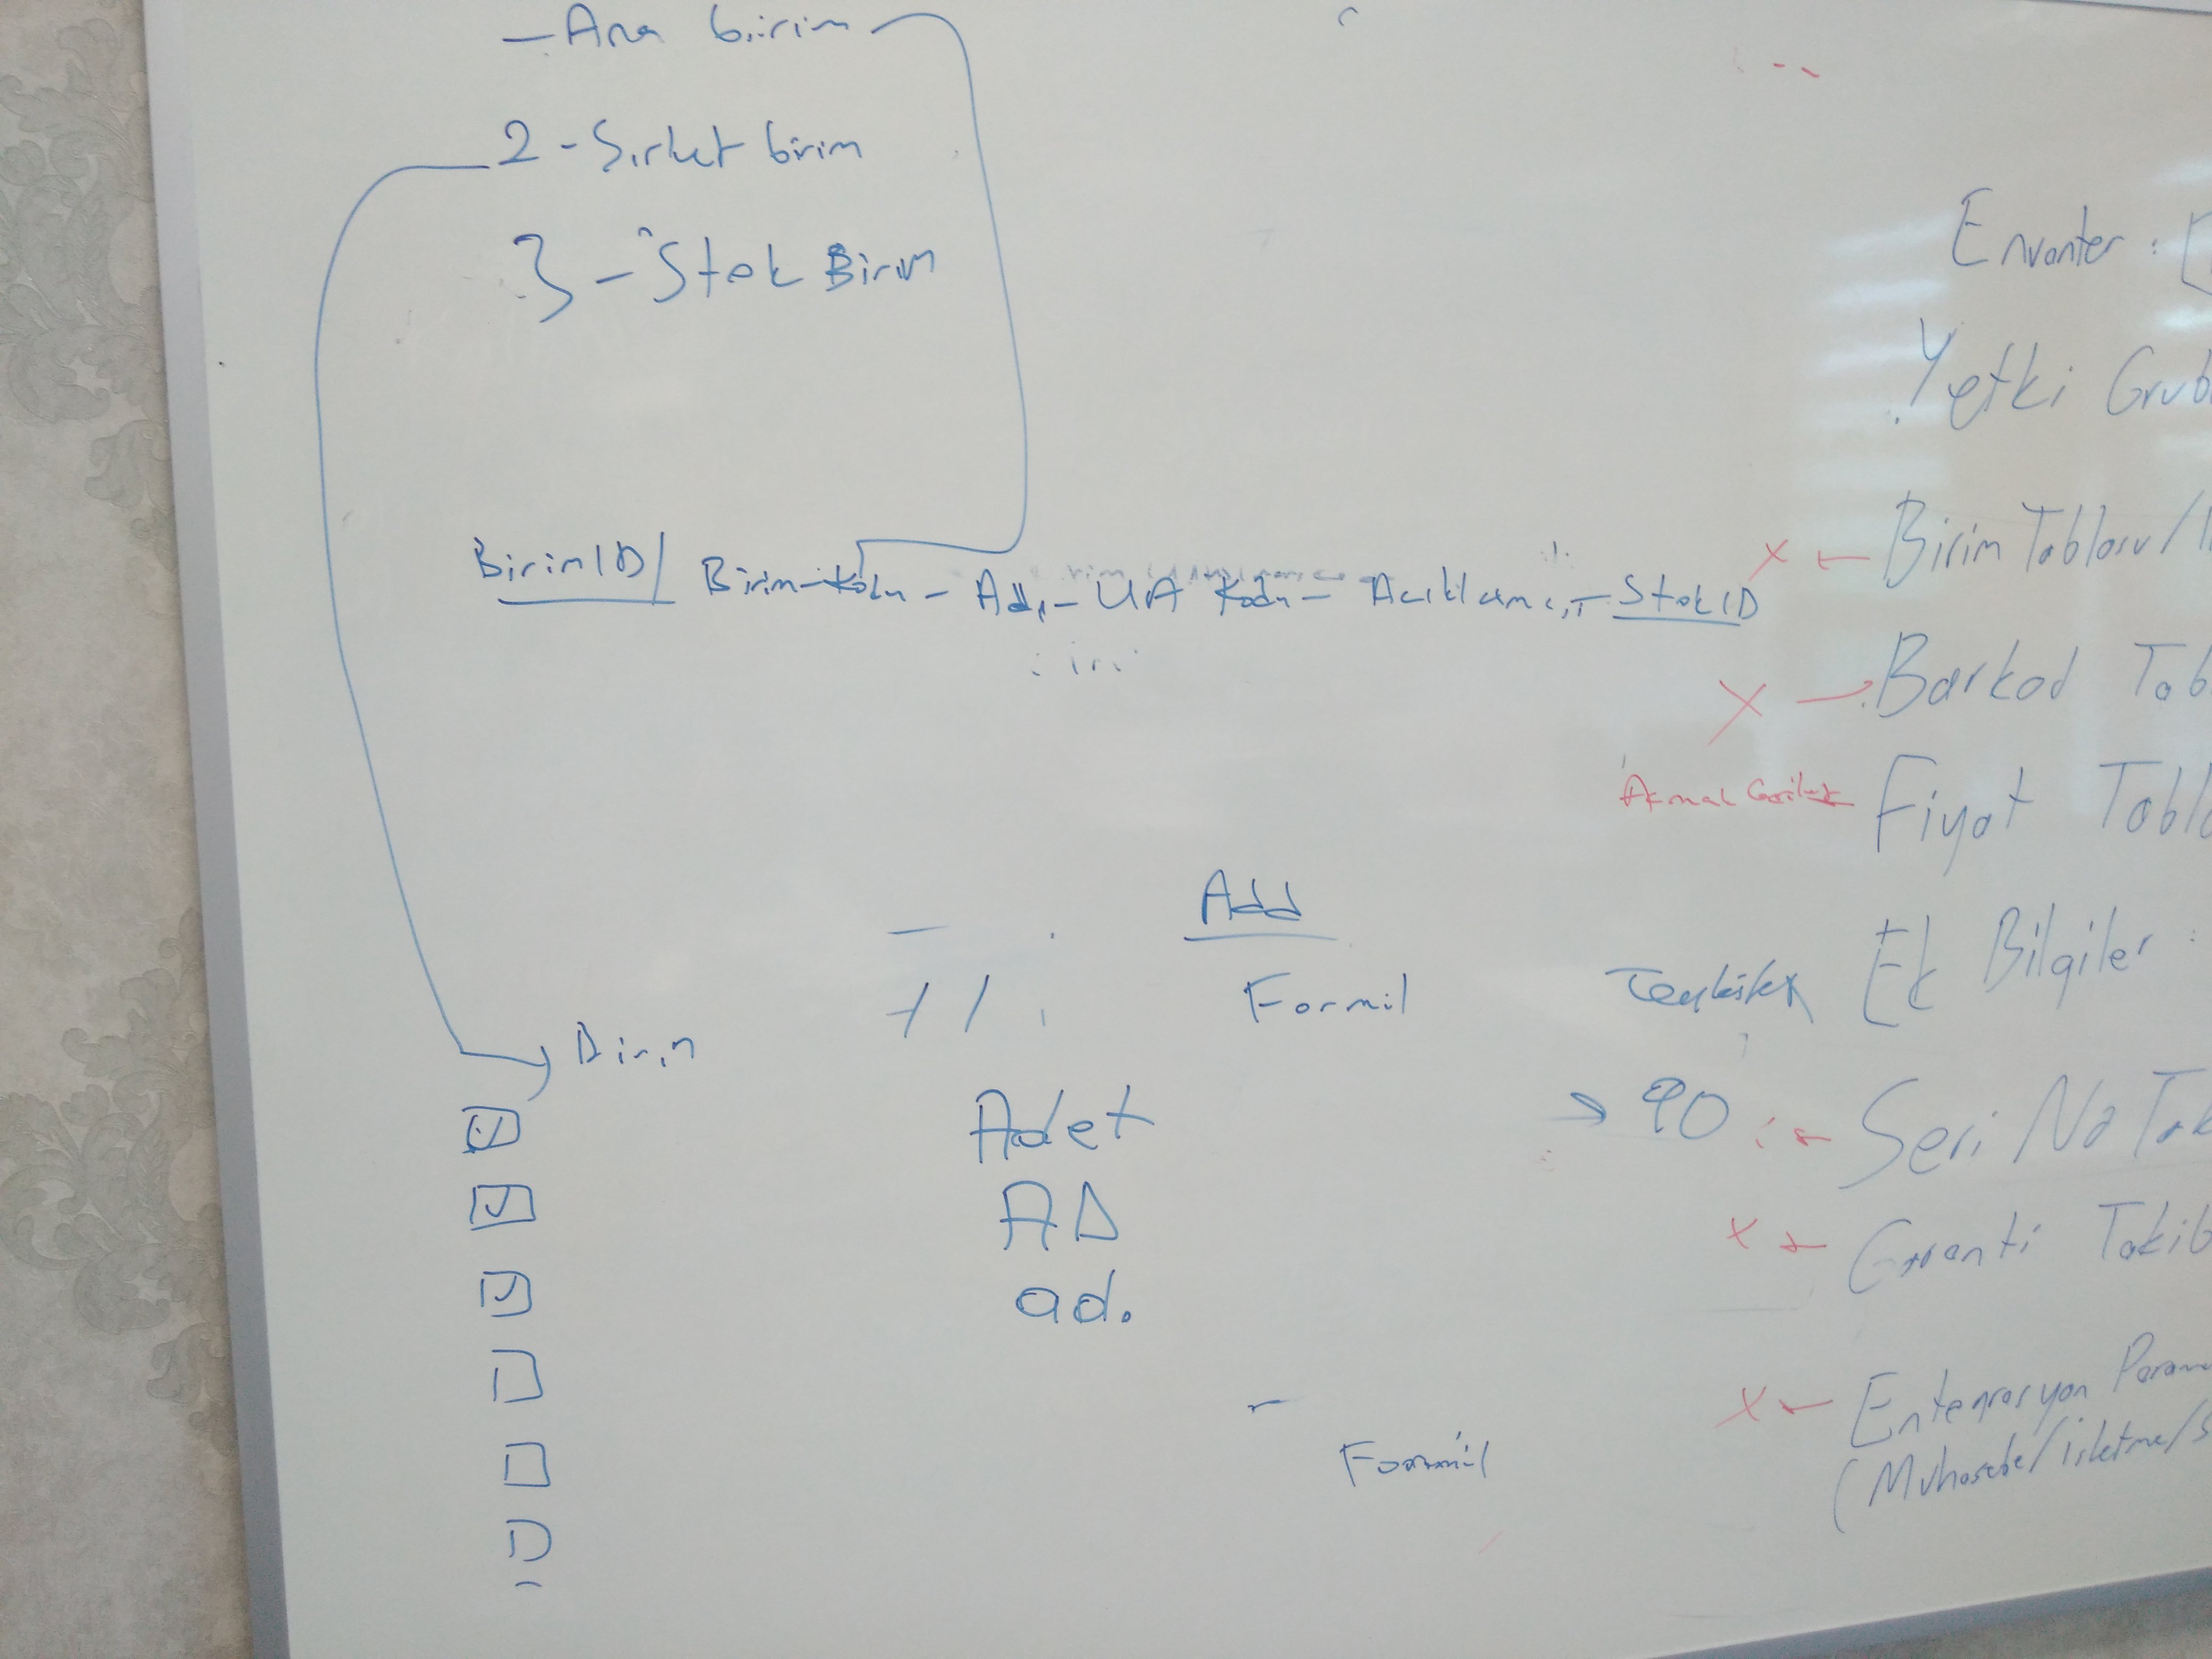 - Ana birim
2 - Sirket birim
3 - Stok Birim
BirimID / Birim Kodu - Adı - UA Kodu - Acıklama - StokID
Add
Formül
Birim
Adet
AD
ad.
Formül
Envanter :
Yetki Grub
Birim Tablosu /
Barkod Tab
Fiyat Tablo
Ek Bilgiler :
→ 90 Seri No Tak
Garanti Takib
Entegrasyon Param
(Muhasebe/isletme/S